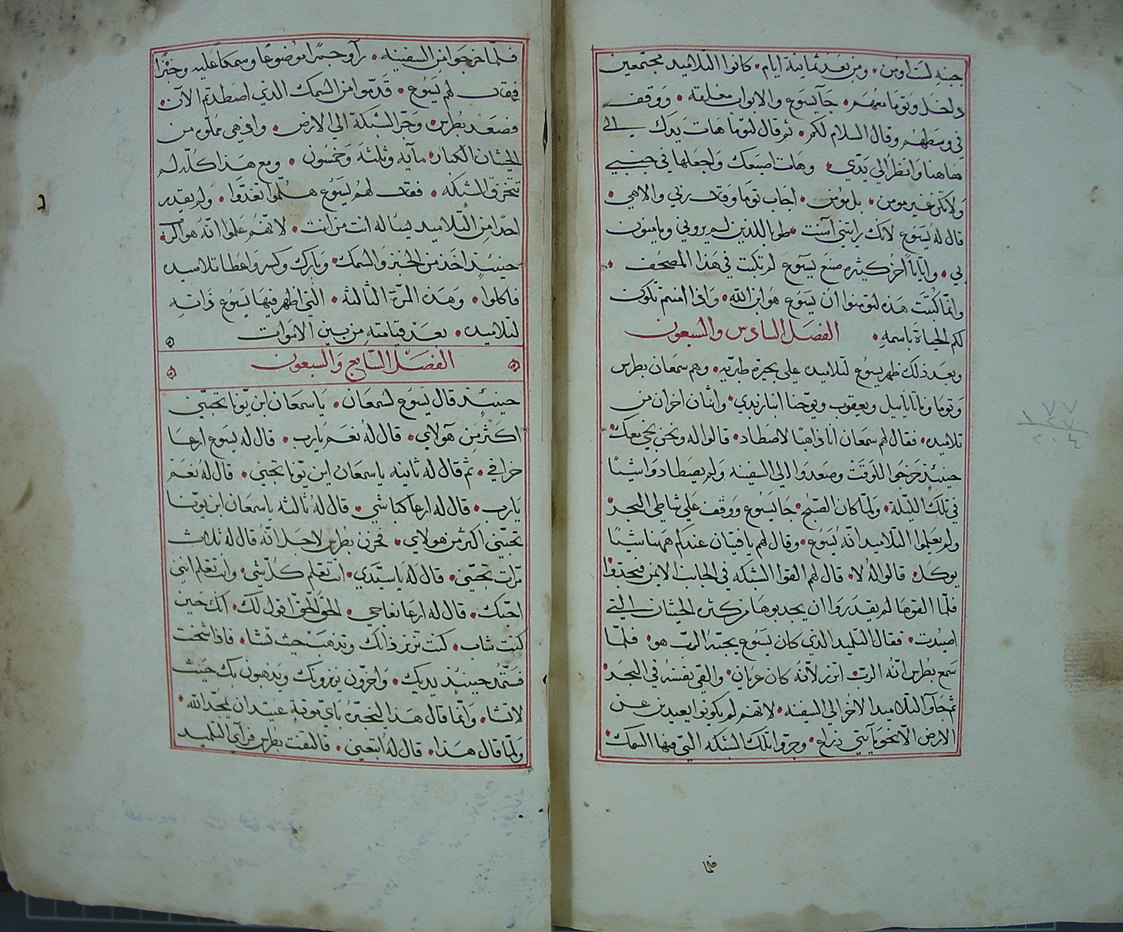 جنبه لنا ومن. ومن بعد ثمانية ايام. كانوا التلاميذ مجتمعين
داخل وتوما معهم. جآ يسوع والابواب مغلقه. ووقف
في وسطهم وقال السلام لكم. ثم قال لتوما هات يدك الي
هاهنا وانظر الي يدي. وهات اصبعك واجعلها في جنبي
ولا تكن غير مومن. بل مومن. اجاب توما وقال ربي والاهي
قال له يسوع لانك رايتني آمنت. طوبا للذين لم يروني ويامنون
بي. وايات آخر كثيره صنع يسوع لم تكتب في هذا المصحف.
وانما كتبت هذه لتومنوا ان يسوع هو ابن الله. واذا امنتم تكون
لكم الحياة باسمه. الفصل السادس والسبعون
وبعد ذلك ظهر يسوع لتلاميذه علي بحيرة طبريه. وهم سمعان بطرس
وتوما وناثاناييل ويعقوب ويوحنا ابنا زبدي. واثنان آخران من
تلاميذه. فقال لهم سمعان انا ذاهبا لاصطاد. قالوا له ونحن نجي معك.
حينيذ خرجوا للوقت وصعدوا الي السفينه ولم يصطادوا شيئا
في تلك الليلة. ولما كان الصبح جا يسوع ووقف علي شاطي البحر
ولم يعلموا التلاميذ انه يسوع. وقال لهم يافتيان عندكم ههنا شيئا
يوكل. قالوا له لا. قال لهم القوا الشبكه في الجانب الايمن فتجدوا
فلما القوها لم يقدروا ان يجدبوها من كثرة الحيتان التي
اصيدت. فقال التلميد الذي كان يسوع يحبه الرب هو. فلما
سمع بطرس انه الرب. اتزر لآنه كان عريان. والقي نفسه في البحر
ثم جاؤ التلاميد الاخر الي السفينه. لانهم لم يكونوا بعيد ين عن
الارض الا نحو مآيتي ذراع. وجروا تلك الشبكه التي فيها السمك
فلما
فلما خرجوا من السفينه. رآو جمرا موضوعا وسمكا عليه وخبزا
فقال لهم يسوع. قدموا من السمك الذي اصطدتم الآن.
فصعد بطرس وجر الشبكة الي الارض. واذ هي مملوه من
الحيتان الكبار. مايه وثلثة وخمسون. ومع هذا كله لم
تتخرق الشبكه. فقال لهم يسوع هلموا تغدوا. ولم يقدر
احد من التلاميد يساله انت من انت. لانهم علموا انه هو الرب
حينيذ اخذ من الخبز والسمك. وبارك وكسر واعطا تلاميده
فاكلوا. وهذه المرة الثالثة. التي اظهر فيها يسوع ذاته
لتلاميذه. بعد قيامته من بين الاموات
الفصل السابع والسبعون
حينيذ قال يسوع لسمعان. يا سمعان ابن يونا تحبني
اكثر من هولاي. قال له نعم يارب. قال له يسوع ارعا
خرافي. ثم قال له ثانيه ياسمعان ابن يونا تحبني. قال له نعم
يارب. قال له ارعا كباشي. قال له ثالثه ياسمعان ابن يونا
تحبني اكثر من هولاي. فحزن بطرس لاجل انه قال له ثلاث
مرات تحبني. قال له ياسيدي. انت تعلم كل شي. وانت تعلم انني
احبك. قال له ارعا نعاجي. الحق الحق اقول لك. انك حين
كنت شاب. كنت تزنر ذاتك وتذهب حيث تشا. فاذا شخت
فستمد حينيذ يديك. واخرون يزنرونك ويدهبون بك حيث
لا تشا. وانما قال هذا ليخبره باي موتة عتيد ان يمجد الله.
ولما قال هذا. قال له اتبعني. فالتفت بطرس فرآي التلميد